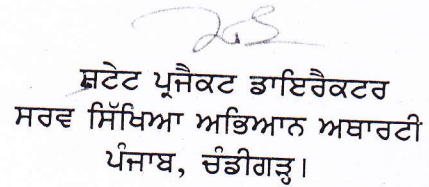 ਸਟੇਟ ਪ੍ਰਜੈਕਟ ਡਾਇਰੈਕਟਰ
ਸਰਵ ਸਿੱਖਿਆ ਅਭਿਆਨ ਅਥਾਰਟੀ
ਪੰਜਾਬ, ਚੰਡੀਗੜ੍ਹ।